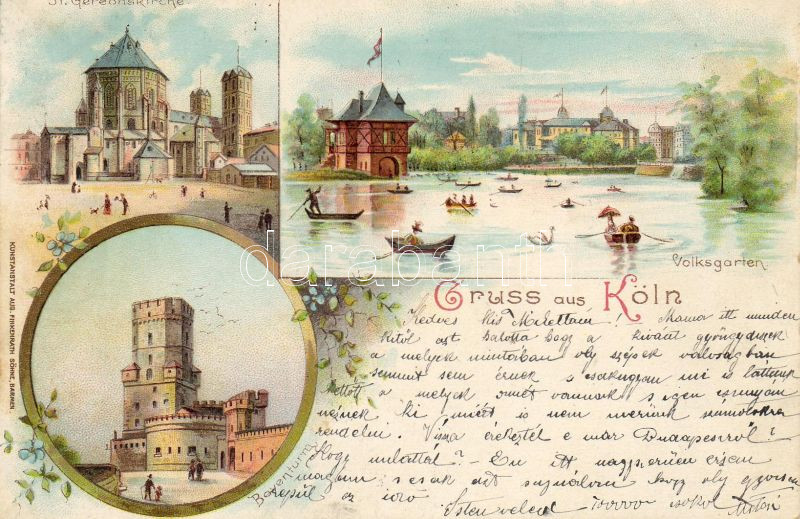 St. Gereonskirche
Volksgarten.
Gruss aus Köln
Bayenturm.
KUNSTANSTALT AUG. FINKENRATH SÖHNE, BARMEN.
darabanth
Kedves kis ! Mama itt minden
kitől azt hallotta hogy a kivánt gyöngydiszek
a melyek mintáiban oly szépek valóságban
semmit sem érnek s csakugyan mi is láttunk
a melyek vannak s igen
nének ki miért is nem merünk számotokra
rendelni. Vissza érkeztél e már Budapestről?
Hogy mulattál? – Én itt nagyszerűen érzem
magam s csak azt sajnálom hogy oly gyorsan
repül az idő
Isten veled 100000 csókol